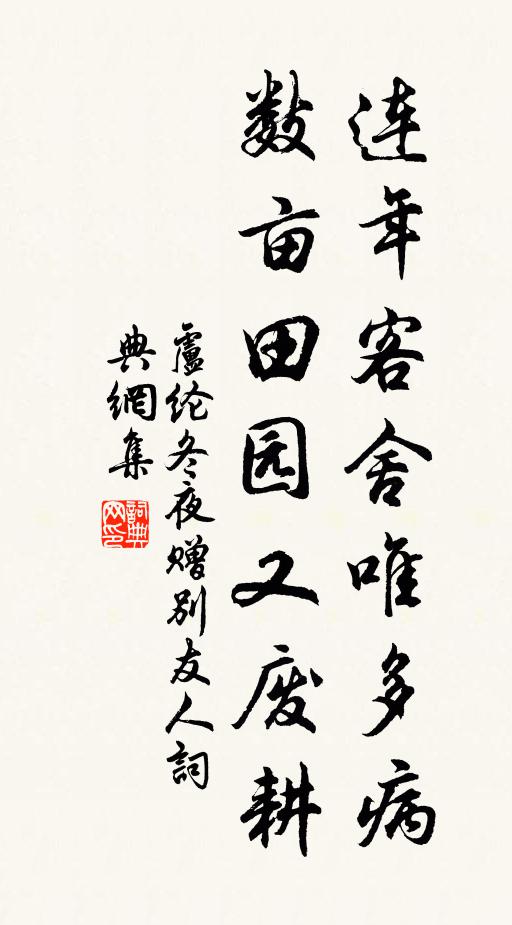 连年客舍唯多病
数亩田园又废耕
盧纶冬夜赠别友人詞
典網集
詞典
网印